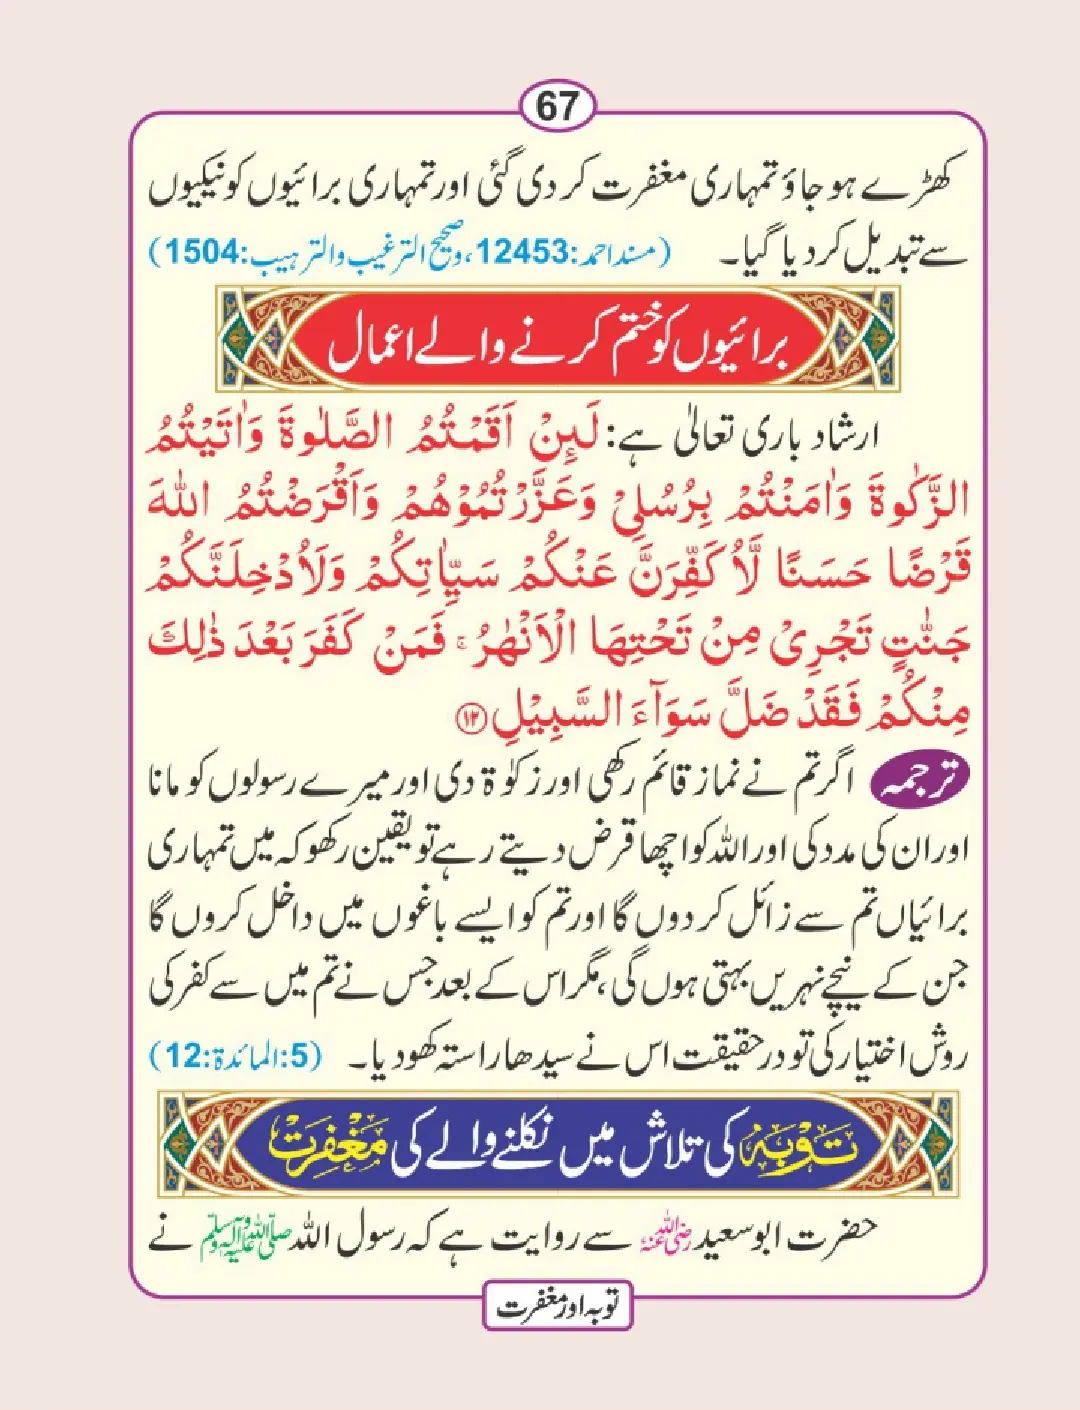 67
کھڑے ہو جاؤ تمہاری مغفرت کر دی گئی اور تمہاری برائیوں کو نیکیوں
سے تبدیل کر دیا گیا۔ (مسند احمد:12453، وصحیح الترغیب والترہیب:1504)
برائیوں کو ختم کرنے والے اعمال
ارشاد باری تعالیٰ ہے: لَىِٕنْ اَقَمْتُمُ الصَّلٰوةَ وَاٰتَيْتُمُ
الزَّكٰوةَ وَاٰمَنْتُمْ بِرُسُلِيْ وَعَزَّرْتُمُوْهُمْ وَاَقْرَضْتُمُ اللّٰهَ
قَرْضًا حَسَنًا لَّاُكَفِّرَنَّ عَنْكُمْ سَيِّاٰتِكُمْ وَلَاُدْخِلَنَّكُمْ
جَنّٰتٍ تَجْرِيْ مِنْ تَحْتِهَا الْاَنْهٰرُ ۚ فَمَنْ كَفَرَ بَعْدَ ذٰلِكَ
مِنْكُمْ فَقَدْ ضَلَّ سَوَآءَ السَّبِيْلِ ۝۱۲
ترجمہ اگر تم نے نماز قائم رکھی اور زکوٰۃ دی اور میرے رسولوں کو مانا
اور ان کی مدد کی اور اللہ کو اچھا قرض دیتے رہے تو یقین رکھو کہ میں تمہاری
برائیاں تم سے زائل کر دوں گا اور تم کو ایسے باغوں میں داخل کروں گا
جن کے نیچے نہریں بہتی ہوں گی، مگر اس کے بعد جس نے تم میں سے کفر کی
روش اختیار کی تو در حقیقت اس نے سیدھا راستہ کھو دیا۔ (5:المائدۃ:12)
توبہ کی تلاش میں نکلنے والے کی مغفرت
حضرت ابو سعید رضی اللہ عنہ سے روایت ہے کہ رسول اللہ صلی اللہ علیہ وآلہ وسلم نے
توبہ اور مغفرت